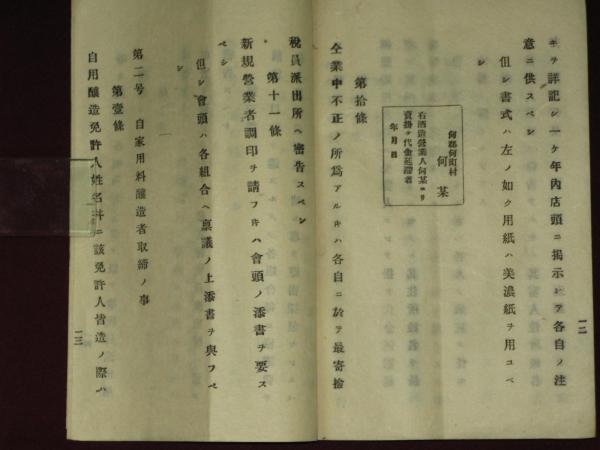 キヲ詳記シ一ケ年內店頭ニ揭示シテ各自ノ注
意ニ供スベシ
但シ書式ハ左ノ如ク用紙ハ美濃紙ヲ用ユベ
シ
何郡何町村
何某
右酒造營業人何某ヨリ
賣掛ケ代金延滯者
年月日
第拾條
仝業中不正ノ所爲アルキハ各自ニ於テ最寄撿
稅員派出所ヘ密告スベシ
第十一條
新規營業者調印ヲ請フキハ會頭ノ添書ヲ要ス
ベシ
但シ會頭ハ各組合ヘ稟議ノ上添書ヲ與フベ
シ
第二号 自家用料釀造者取締ノ事
第壹條
自用釀造免許人姓名幷ニ該免許人皆造ノ際ハ
一二
一三